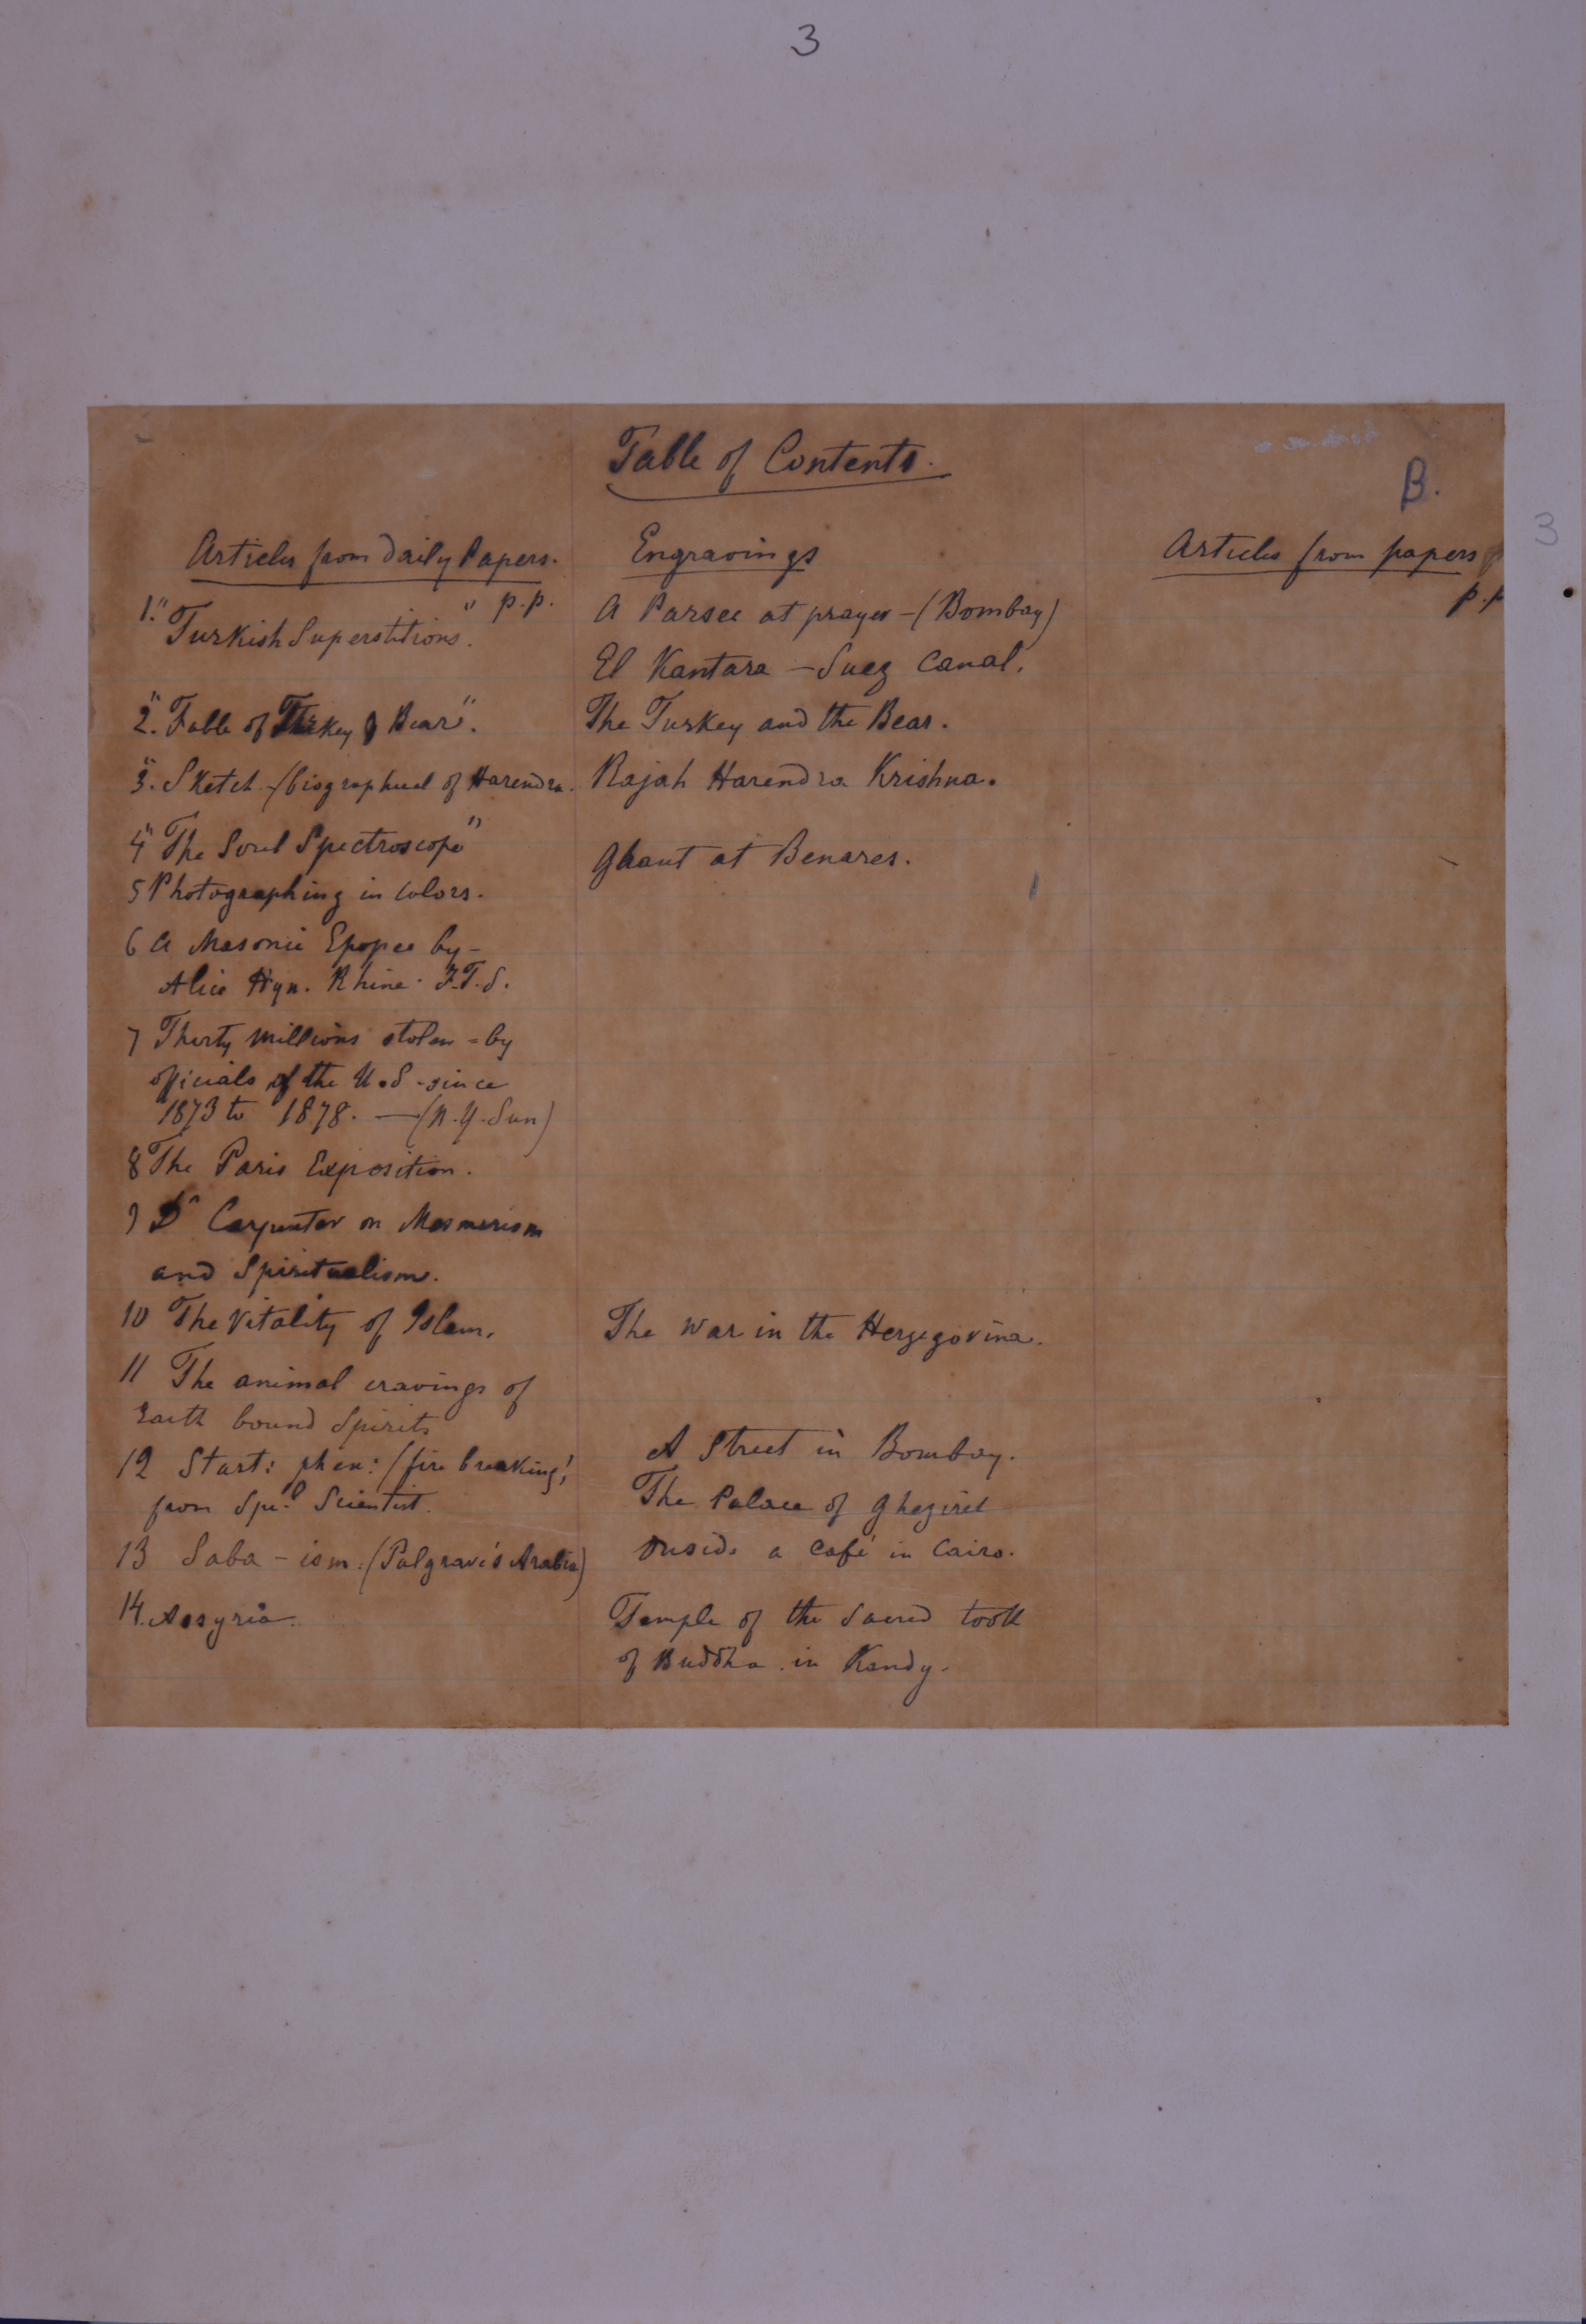 3
Table of Contents.
B.
3
Articles from Daily Papers.
p.p.
1. "Turkish Superstitions".
"2. Fable of Turkey & Bear".
"3. Sketch (biographical of Harendra.
4 "The Soul Spectroscope"
5 Photographing in Colors.
6 A Masonic Epopee by –
Alice Hyn. Rhine. F.T.S.
7 Thirty millions stolen = by
officials of the U.S. since
1873 to 1878. — (N.Y. Sun)
8 The Paris Exposition.
9 Dr Carpenter on Mesmerism
and Spiritualism.
10 The Vitality of Islam.
11 The animal cravings of
Earth bound Spirits
12 Start: phen: (fire breaking!
from Spl. Scientist.
13 Saba-ism: (Palgrave's Arabia)
14. Assyria.
Engravings
A Parsee at prayer – (Bombay)
El Kantara – Suez Canal.
The Turkey and the Bear.
Rajah Harendra Krishna.
Ghaut at Benares.
The War in the Herzegovina.
A Street in Bombay.
The Palace of Ghezireh
Inside a Café in Cairo.
Temple of the Sacred tooth
of Buddha in Kandy.
Articles from papers
p.p